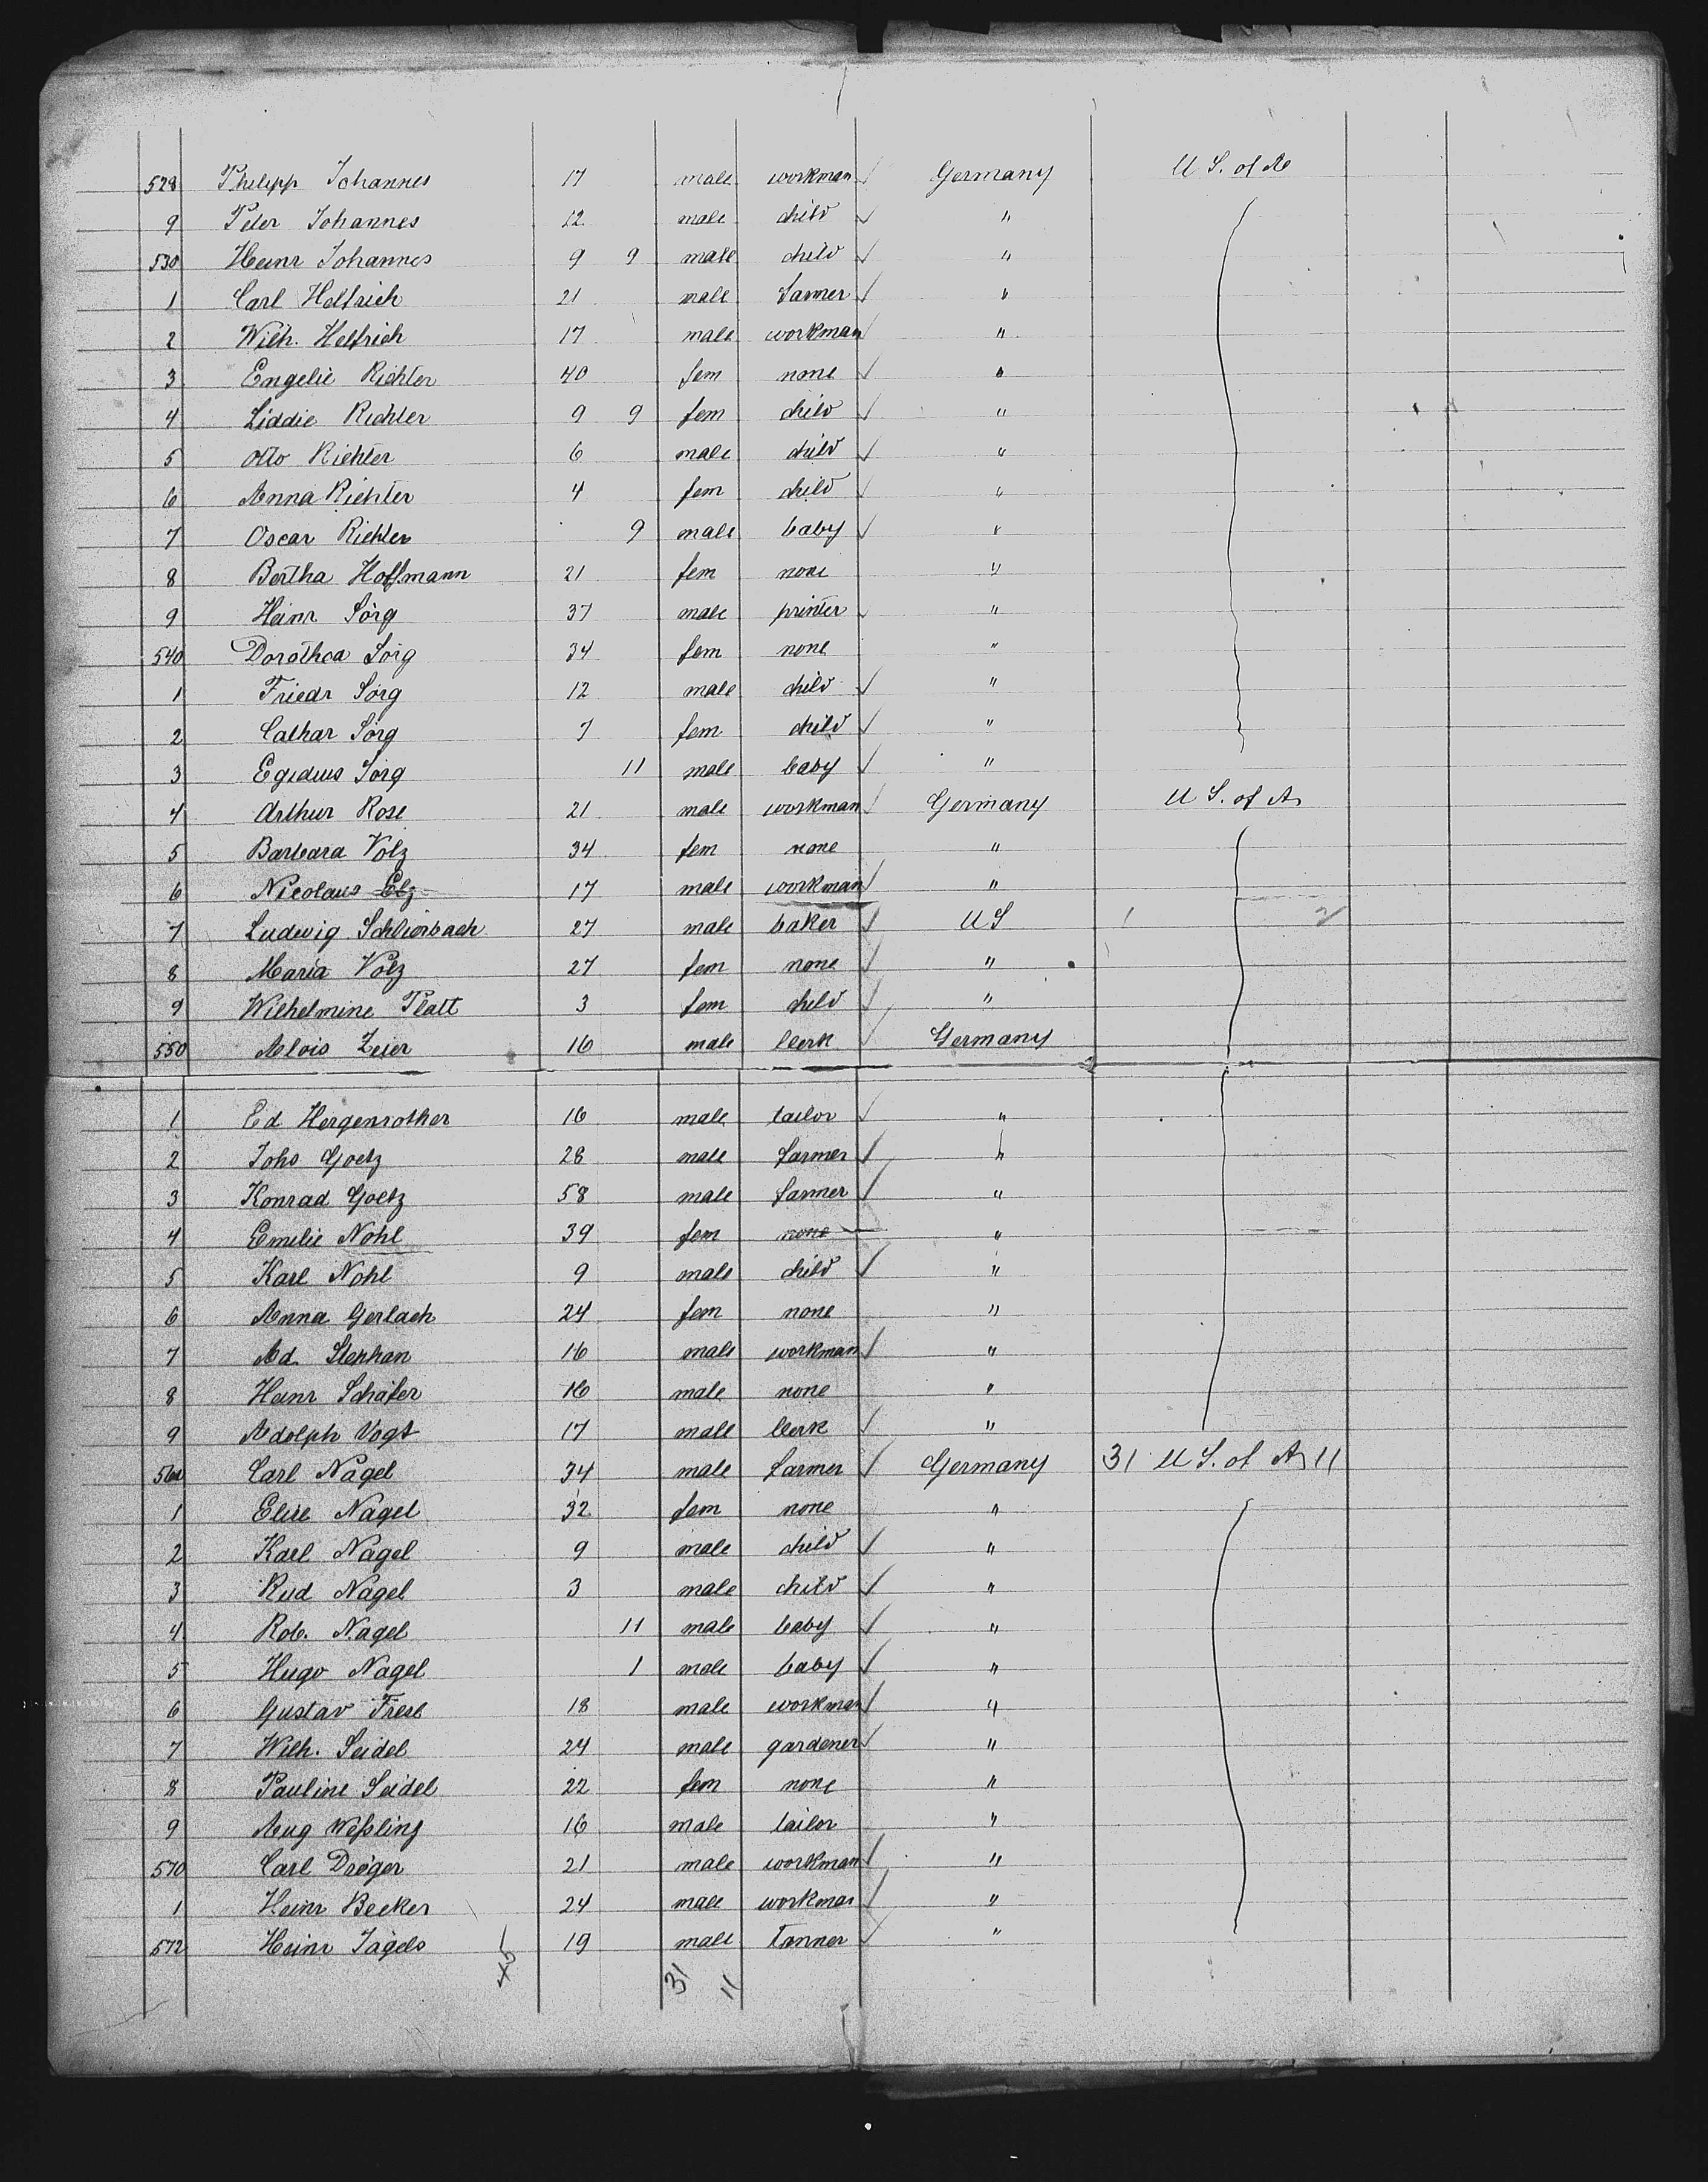 528 Philipp Johannes 17 male workman Germany U S. of A
9 Peter Johannes 12 male child "
530 Heinr Johannes 9 9 male child "
1 Carl Helfrich 21 male farmer "
2 Wilh. Helfrich 17 male workman "
3 Engelie Richter 40 fem none "
4 Liddie Richter 9 9 fem child "
5 Otto Richter 6 male child "
6 Anna Richter 4 fem child "
7 Oscar Richter 9 male baby "
8 Bertha Hoffmann 21 fem none "
9 Heinr Sörg 37 male printer "
540 Dorothea Sörg 34 fem none "
1 Friedr Sörg 12 male child "
2 Cathar Sörg 7 fem child "
3 Egidius Sörg 11 male baby "
4 Arthur Rose 21 male workman Germany U S. of A
5 Barbara Volz 34 fem none "
6 Nicolaus Elz 17 male workman "
7 Ludwig Schlierbach 27 male baker U S 1 2
8 Maria Volz 27 fem none "
9 Wilhelmine Platt 3 fem child "
550 Alois Zeier 16 male clerk Germany
1 Ed Hergenrother 16 male tailor "
2 Johs Goetz 28 male farmer "
3 Konrad Goetz 58 male farmer "
4 Emilie Nohl 39 fem none "
5 Karl Nohl 9 male child "
6 Anna Gerlach 24 fem none "
7 Ad. Stephan 16 male workman "
8 Heinr Schäfer 16 male none "
9 Adolph Vogt 17 male clerk "
560 Carl Nagel 34 male farmer Germany 31 U S. of A 11
1 Elise Nagel 32 fem none "
2 Karl Nagel 9 male child "
3 Rud Nagel 3 male child "
4 Rob. Nagel 11 male baby "
5 Hugo Nagel 1 male baby "
6 Gustav Frese 18 male workman "
7 Wilh. Seidel 24 male gardener "
8 Pauline Seidel 22 fem none "
9 Aug Weßling 16 male tailor "
570 Carl Dröger 21 male workman "
1 Heinr Becker 24 male workman "
572 Heinr Jagels 19 male Tanner "
45 31 11